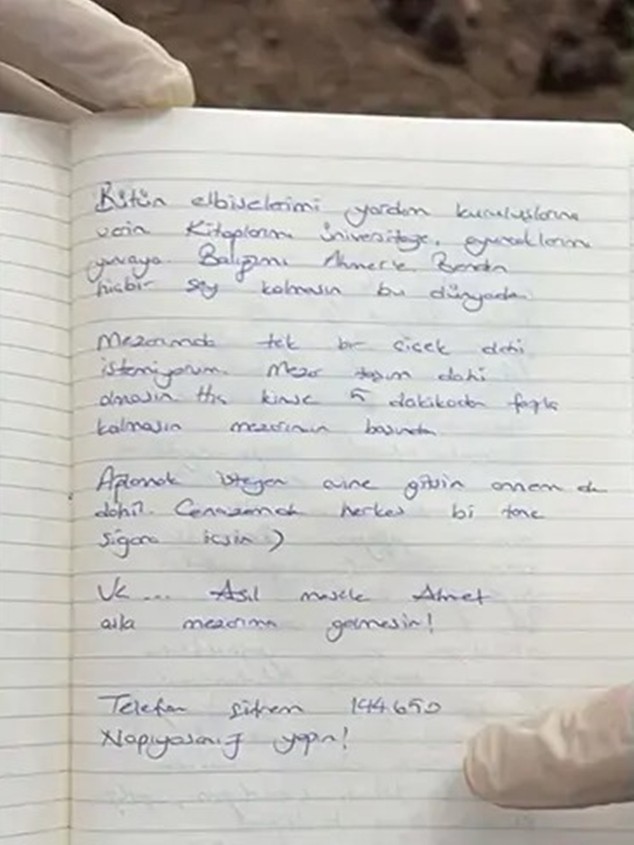 Bütün elbiselerimi yardım kuruluşlarına
verin Kitaplarımı üniversiteye, oyuncaklarımı
yuvaya. Balığımı Ahmet'e. Benden
hiçbir şey kalmasın bu dünyada.
Mezarımda tek bir çiçek dahi
istemiyorum. Mezar taşım dahi
olmasın. Hiç kimse 5 dakikadan fazla
kalmasın mezarımın başında
Ağlamak isteyen evine gitsin annem de
dahil. Cenazemde herkes bi tane
sigara içsin :)
Ve... Asıl mesele Ahmet
asla mezarıma gelmesin!
Telefon şifrem 194.650
Napıyosanız yapın!